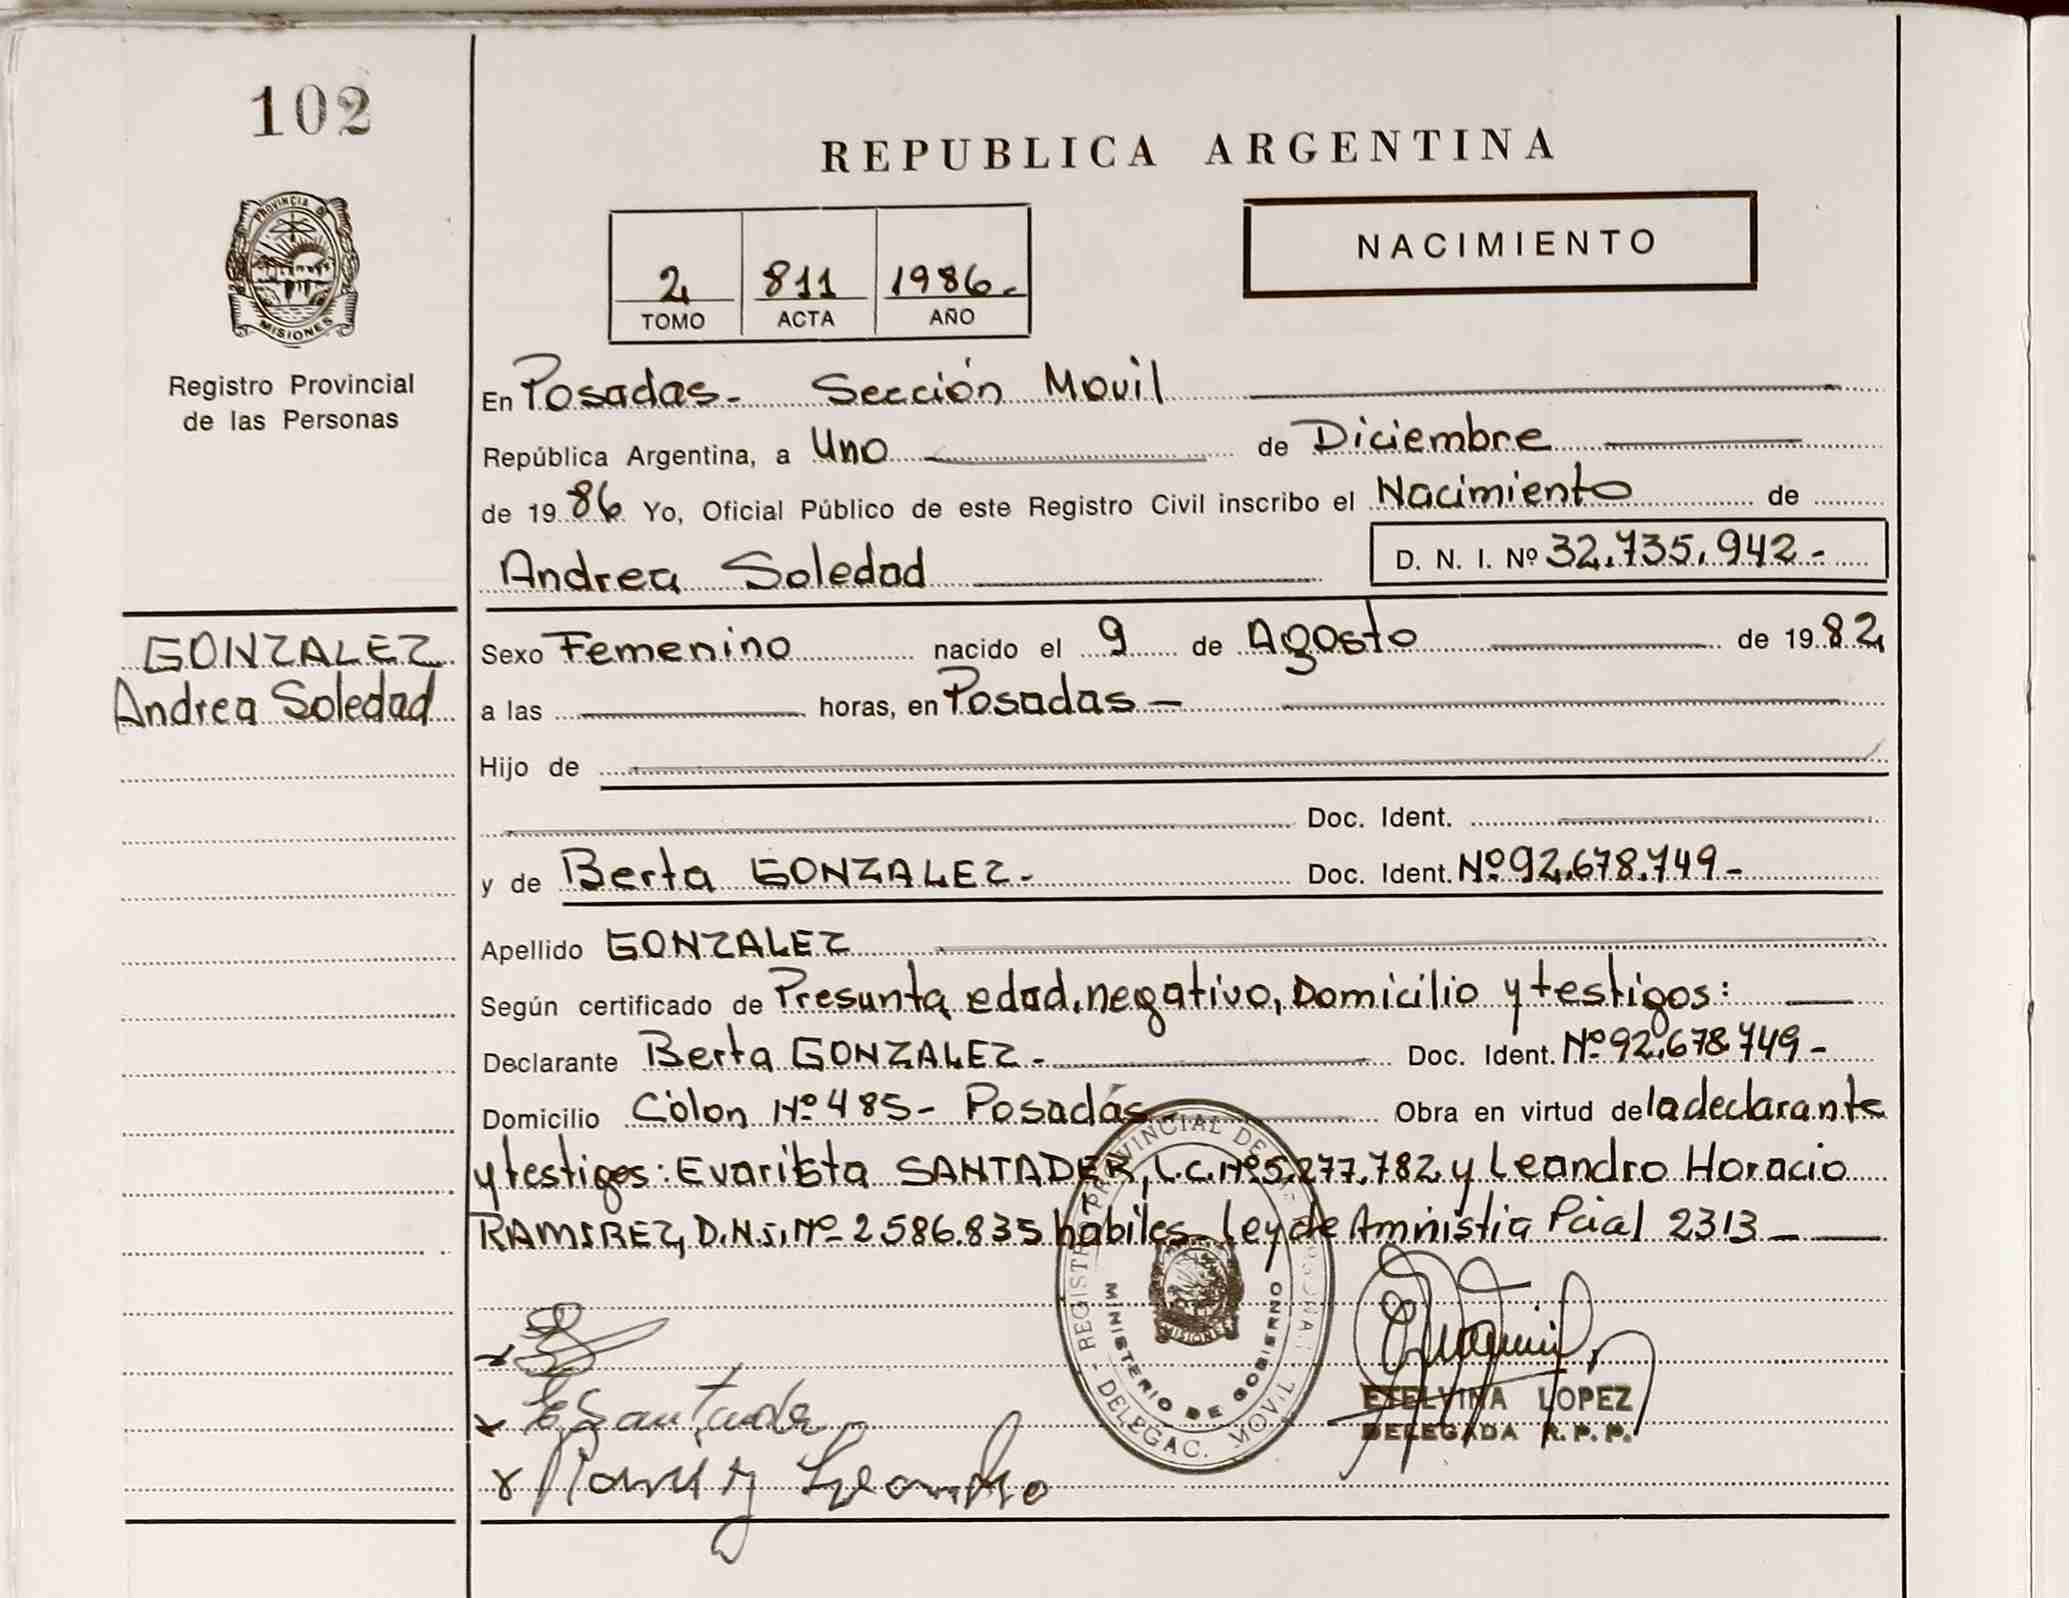 102
REPUBLICA ARGENTINA
PROVINCIA D
MISIONES
2 811 1986.-
TOMO ACTA AÑO
NACIMIENTO
Registro Provincial
de las Personas
En Posadas.- Sección Movil
República Argentina, a Uno de Diciembre
de 1986 Yo, Oficial Público de este Registro Civil inscribo el Nacimiento de
Andrea Soledad D. N. I. Nº 32.735.942.-
GONZALEZ
Andrea Soledad
Sexo Femenino nacido el 9 de Agosto de 1982
a las horas, en Posadas.-
Hijo de
Doc. Ident.
y de Berta GONZALEZ.- Doc. Ident. Nº 92.678.749-
Apellido GONZALEZ
Según certificado de Presunta edad, negativo, Domicilio y testigos:
Declarante Berta GONZALEZ.- Doc. Ident. Nº 92.678.749-
Domicilio Colon Nº 485- Posadas Obra en virtud de la declarante
y testigos: Evarista SANTADER, L.C. Nº 5.277.782 y Leandro Horacio
RAMIREZ, D.N.I. Nº 2.586.835 habiles- Ley de Amnistia Pcial 2313-
REGISTRO PROVINCIAL DE LAS PERSONAS
MINISTERIO DE GOBIERNO
MISIONES
- DELEGAC. MOVIL -
E Santader
Ramirez Leandro
ETELVINA LOPEZ
DELEGADA R.P.P.